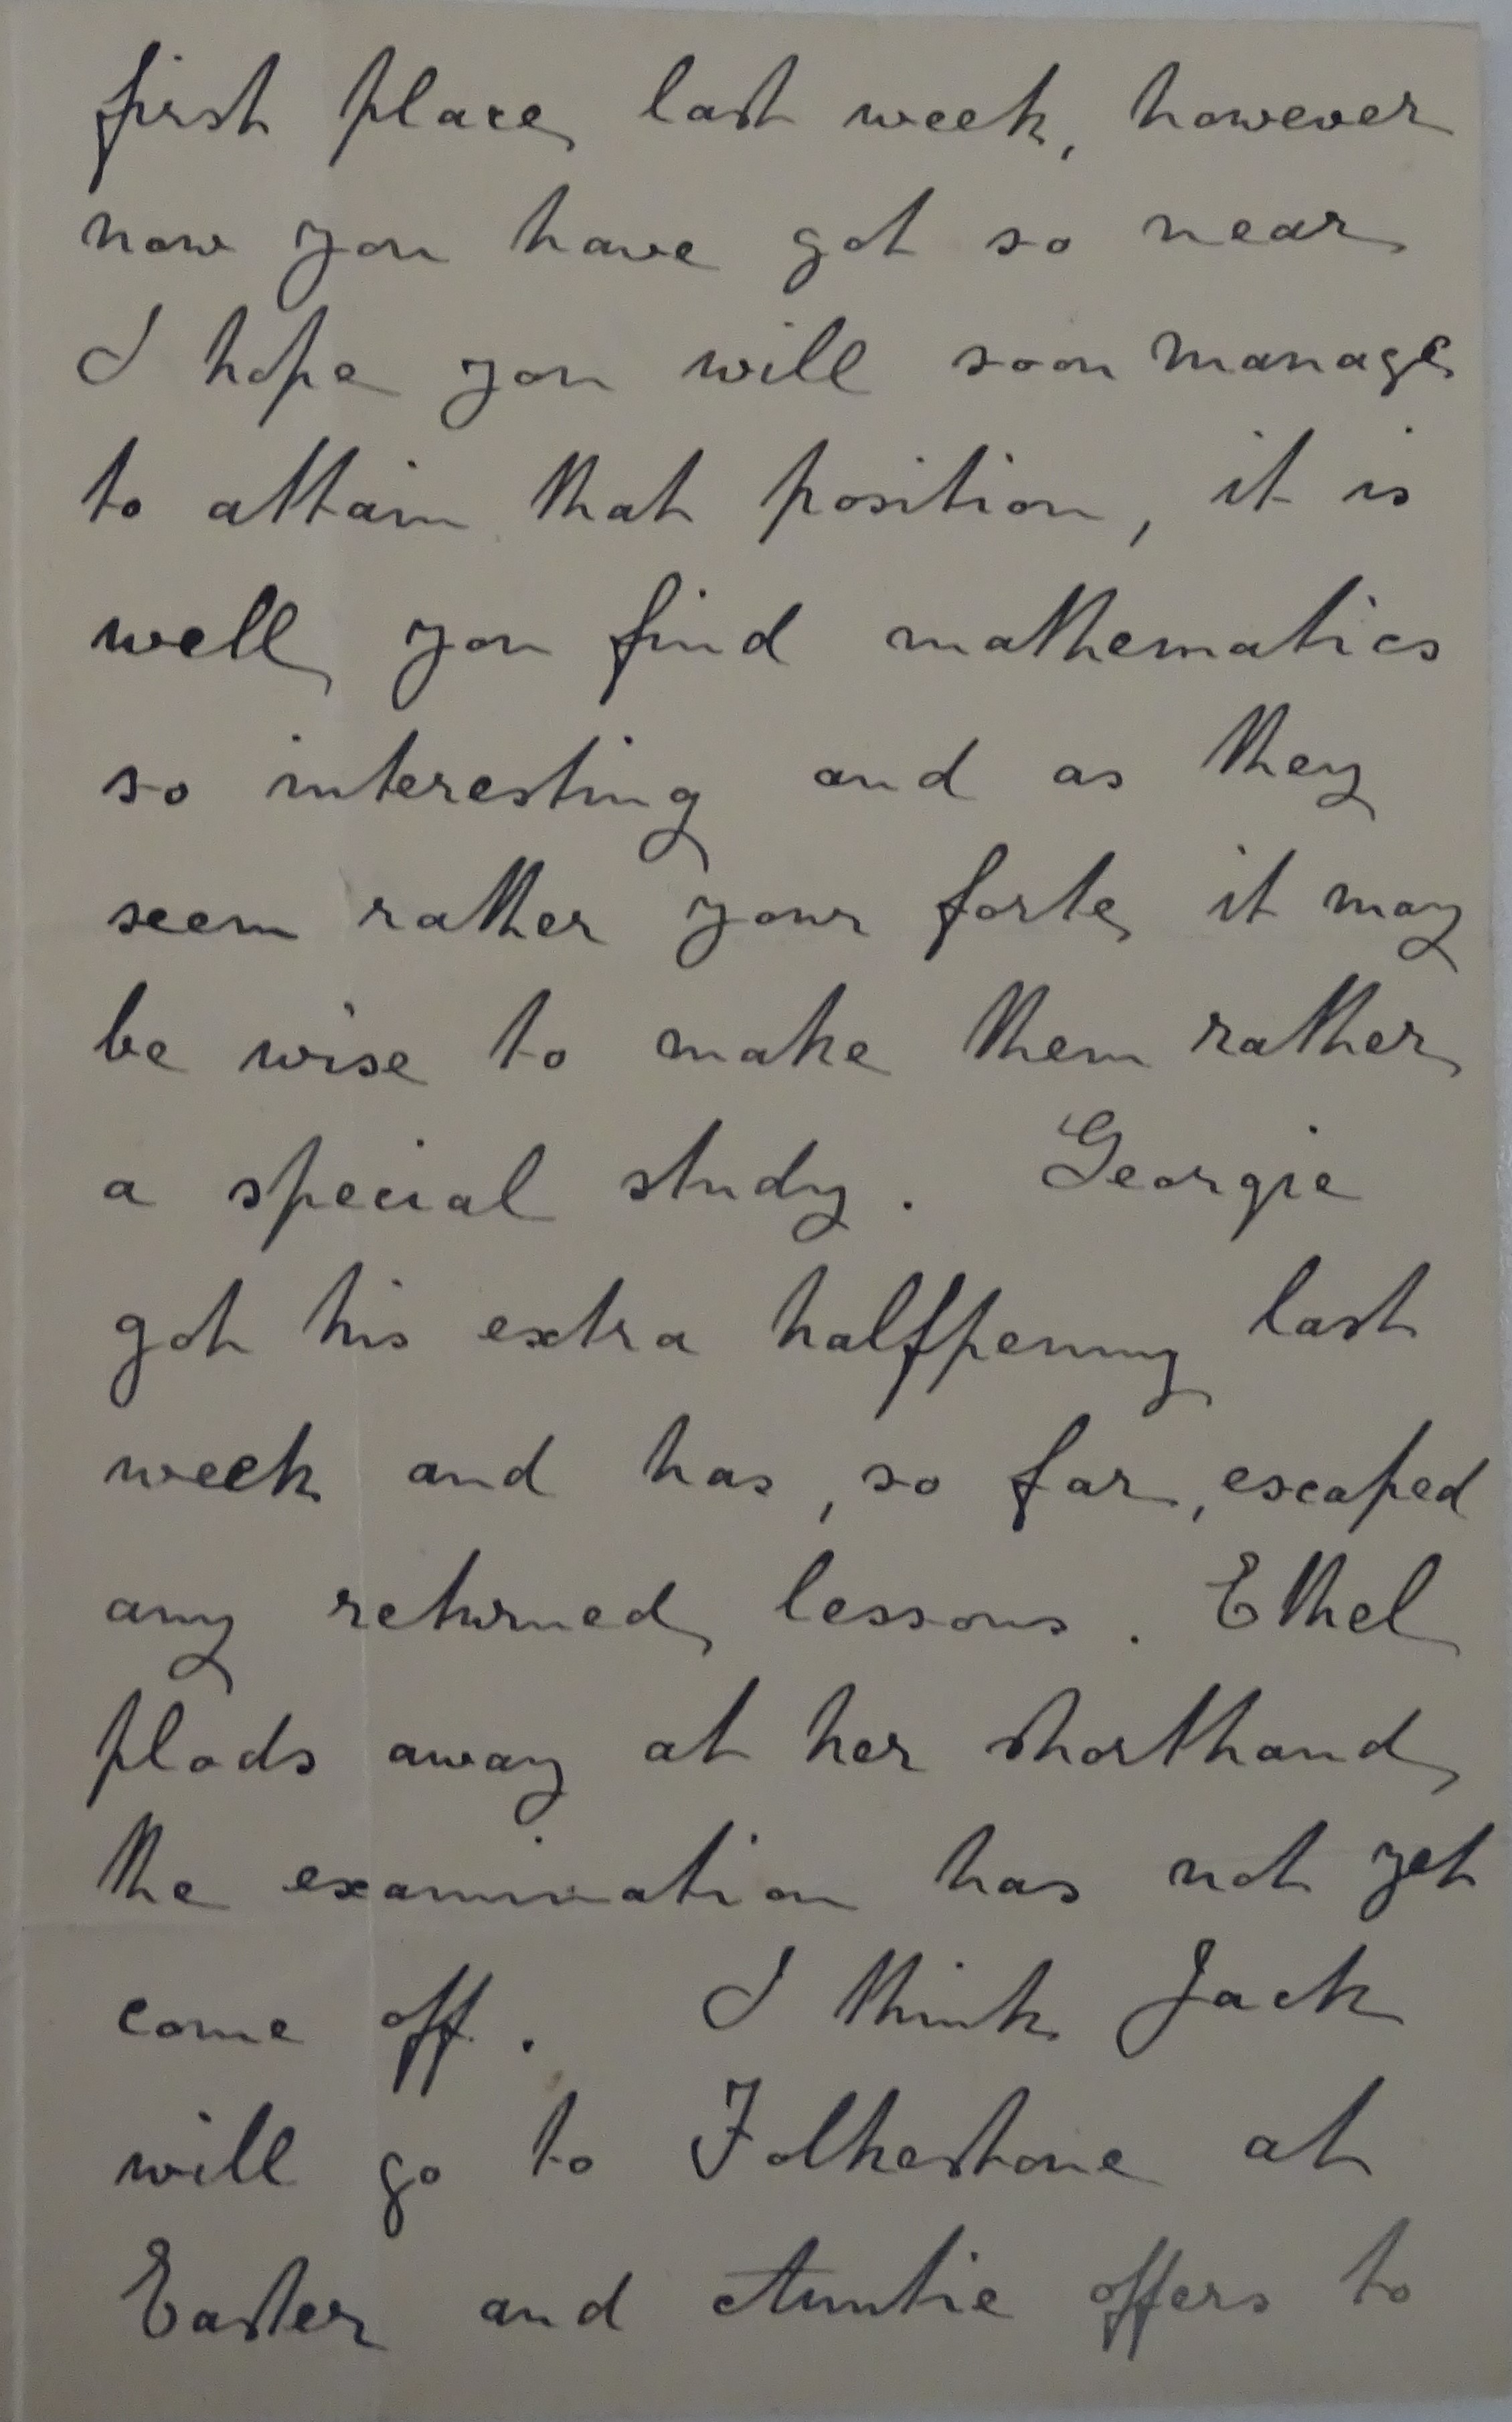 first place last week, however
now you have got so near
I hope you will soon manage
to attain that position, it is
well you find mathematics
so interesting and as they
seem rather your forte it may
be wise to make them rather
a special study. Georgie
got his extra halfpenny last
week and has, so far, escaped
any returned lessons. Ethel
plods away at her shorthand
the examination has not yet
come off. I think Jack
will go to Folkestone at
Easter and Auntie offers to